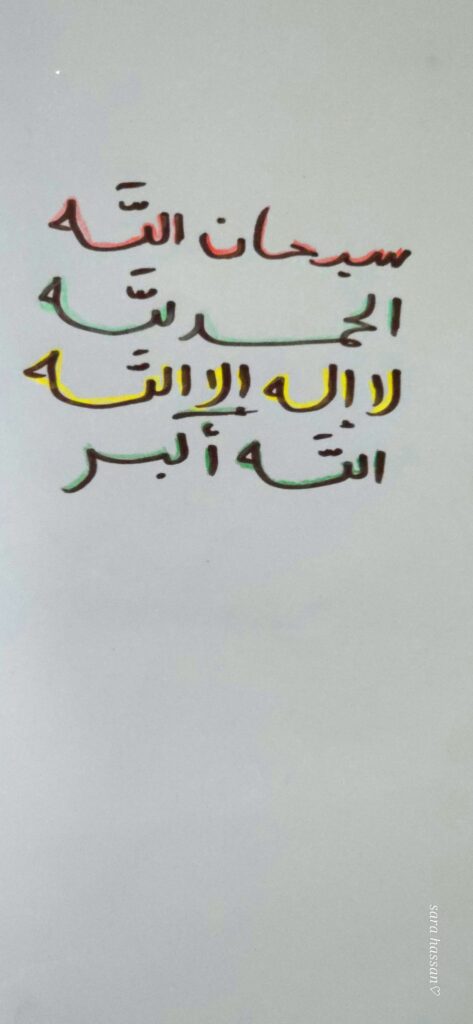 سبحان اللَّه
الحمد للَّه
لا إله إلا اللَّه
اللَّه أكبر
sara hassan♡